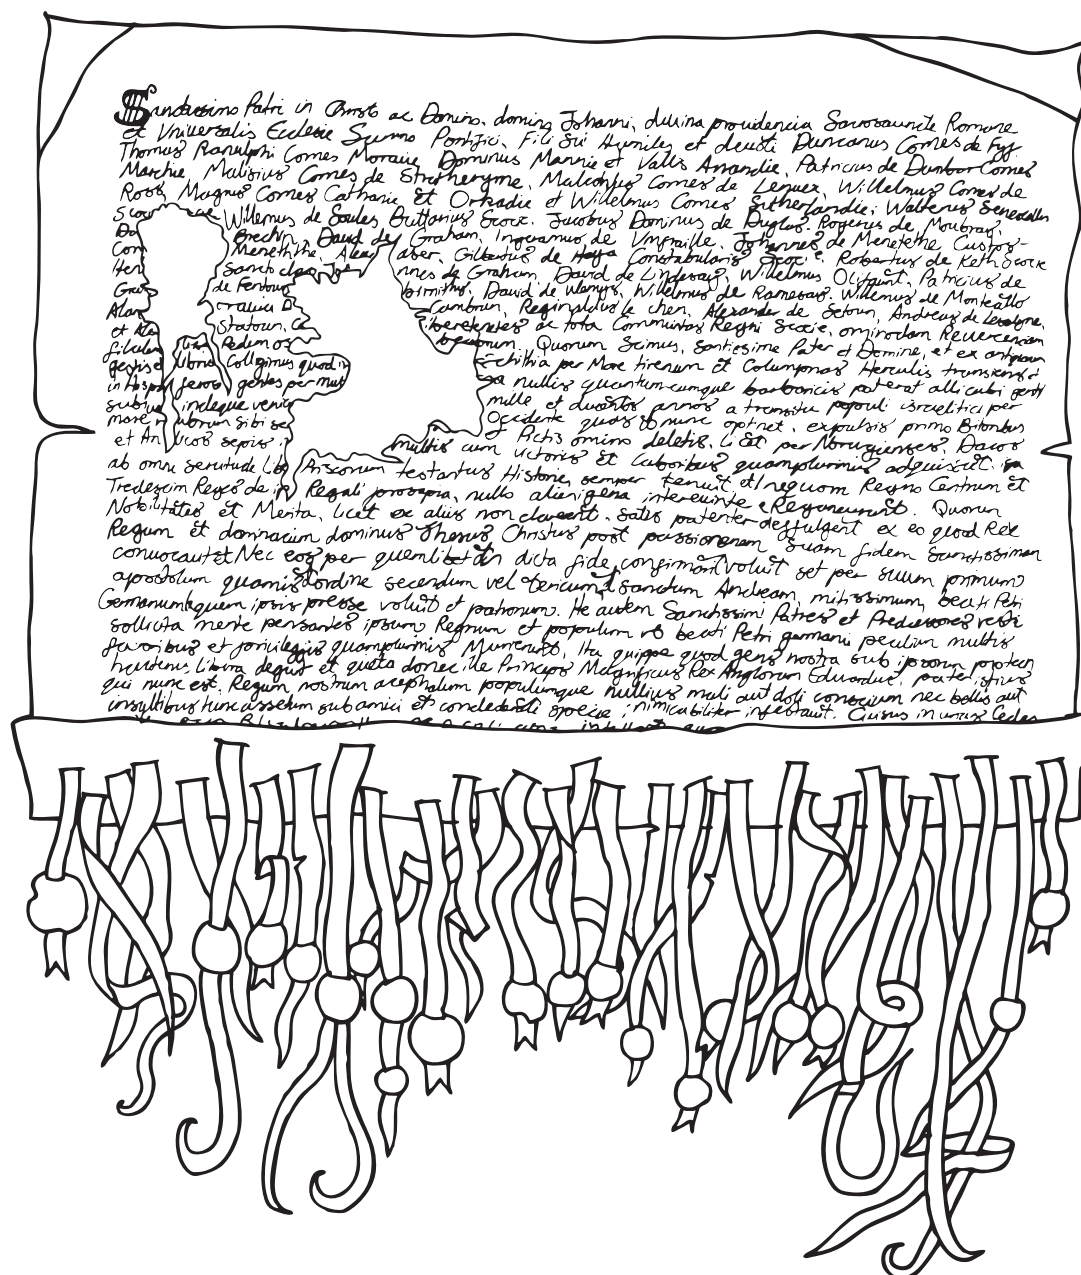 Sanctissimo Patri in Christo ac Domino, domino Johanni, diuina prouidencia Sacrosauncte Romane
et Vniuersalis Ecclesie Summo Pontifici, Filii Sui Humiles et deuoti Duncanus Comes de Fyf
Thomas Ranulphi Comes Morauie Dominus Mannie et Vallis Annandie, Patricius de Dunbar Comes
Marchie, Malisius Comes de Stratheryne, Malcolmus Comes de Leuenex, Willelmus Comes de
Ross, Magnus Comes Cathanie et Orkadie et Willelmus Comes Sutherlandie; Walterus Senescallus
Scoc Willemus de Soules Buttelarius Scocie, Jacobus Dominus de Duglas, Rogerus de Moubray,
Da Brechin, Dauid de Graham, Ingeramus de Vmfraille, Johannes de Menetethe Custos-
Com Menethethe, Alex aber, Gilbertus de Haya Constabularius Scocie, Robertus de Keth Scocie
Hen Sancto nnes de Graham, Dauid de Lindesay, Willelmus Olifaunt, Patricius de
Gra de Fentoun birnithy, Dauid de Wemys, Willelmus de Ramesay, Willemus de Montealto
Alan Cambrun, Reginaldus le chen, Alexander de Setoun, Andreas de
et Ale Statoun, Ca libere tenentes ac tota Communitas Regni Scocie, omimodam Reuerenciam
filialem Pedum os beatorum. Quorum Scimus, Santissime Pater et Domine, et ex antiquorum
gestis et libris Colligimus quod in Schithia per Mare tirenum et Columpnas Herculis transiens et
in Hispa feroc gentes per mul a nullis quantumcumque barbaricis poterat allicubi genti
subiu indeque venie mille et ducentos annos a transitu populi israelitici per
mare uorum sibi se Occidente quas nunc optinet, expulsis primo Britonbus
et An licos sepius i multis cum Pictis omino deletis, licet per Noruagienses, Dacos
ab omni seruitude Lib Priscorum testantur Historie, semper tenuit. In quorum Regno Centum et
Tredescim Reges de i Regali prosapia, nullo alienigena interueniente, Regnauerunt. Quorum
Nobilitates et Merita, licet ex aliis non clarerent, satis patenter effulgent ex eo quod Rex
Regum et dominacium dominus Jhesus Christus post passionem suam fidem sanctissimam
conuocauit Nec eos per quemlibet in dicta fide confirmari voluit set per suum primum
apostolum quamis ordine secundum vel tercium, sanctum Andream, mitissimum, beati Petri
Germanum quem ipsis preesse voluit et patronum. He autem Sanctissimi Patres et Predicessores vestri
sollicita mente pensantes ipsum Regnum et populum vt beati Petri germani peculium multis
fauoribus et priuilegiis quamplurimis Munierunt, Ita quippe quod gens nostra sub ipsorum protectione
hactenus libera deguit et quieta donec ille Princeps Magnificus Rex Anglorum Eduardus, pater istius
qui nunc est, Regum nostrum acephalum populumque nullius mali aut doli conscium nec bellis aut
insultibus tunc assuetum sub amici et confederati specie inimicabiliter infestauit. Cuius iniurias Cedes